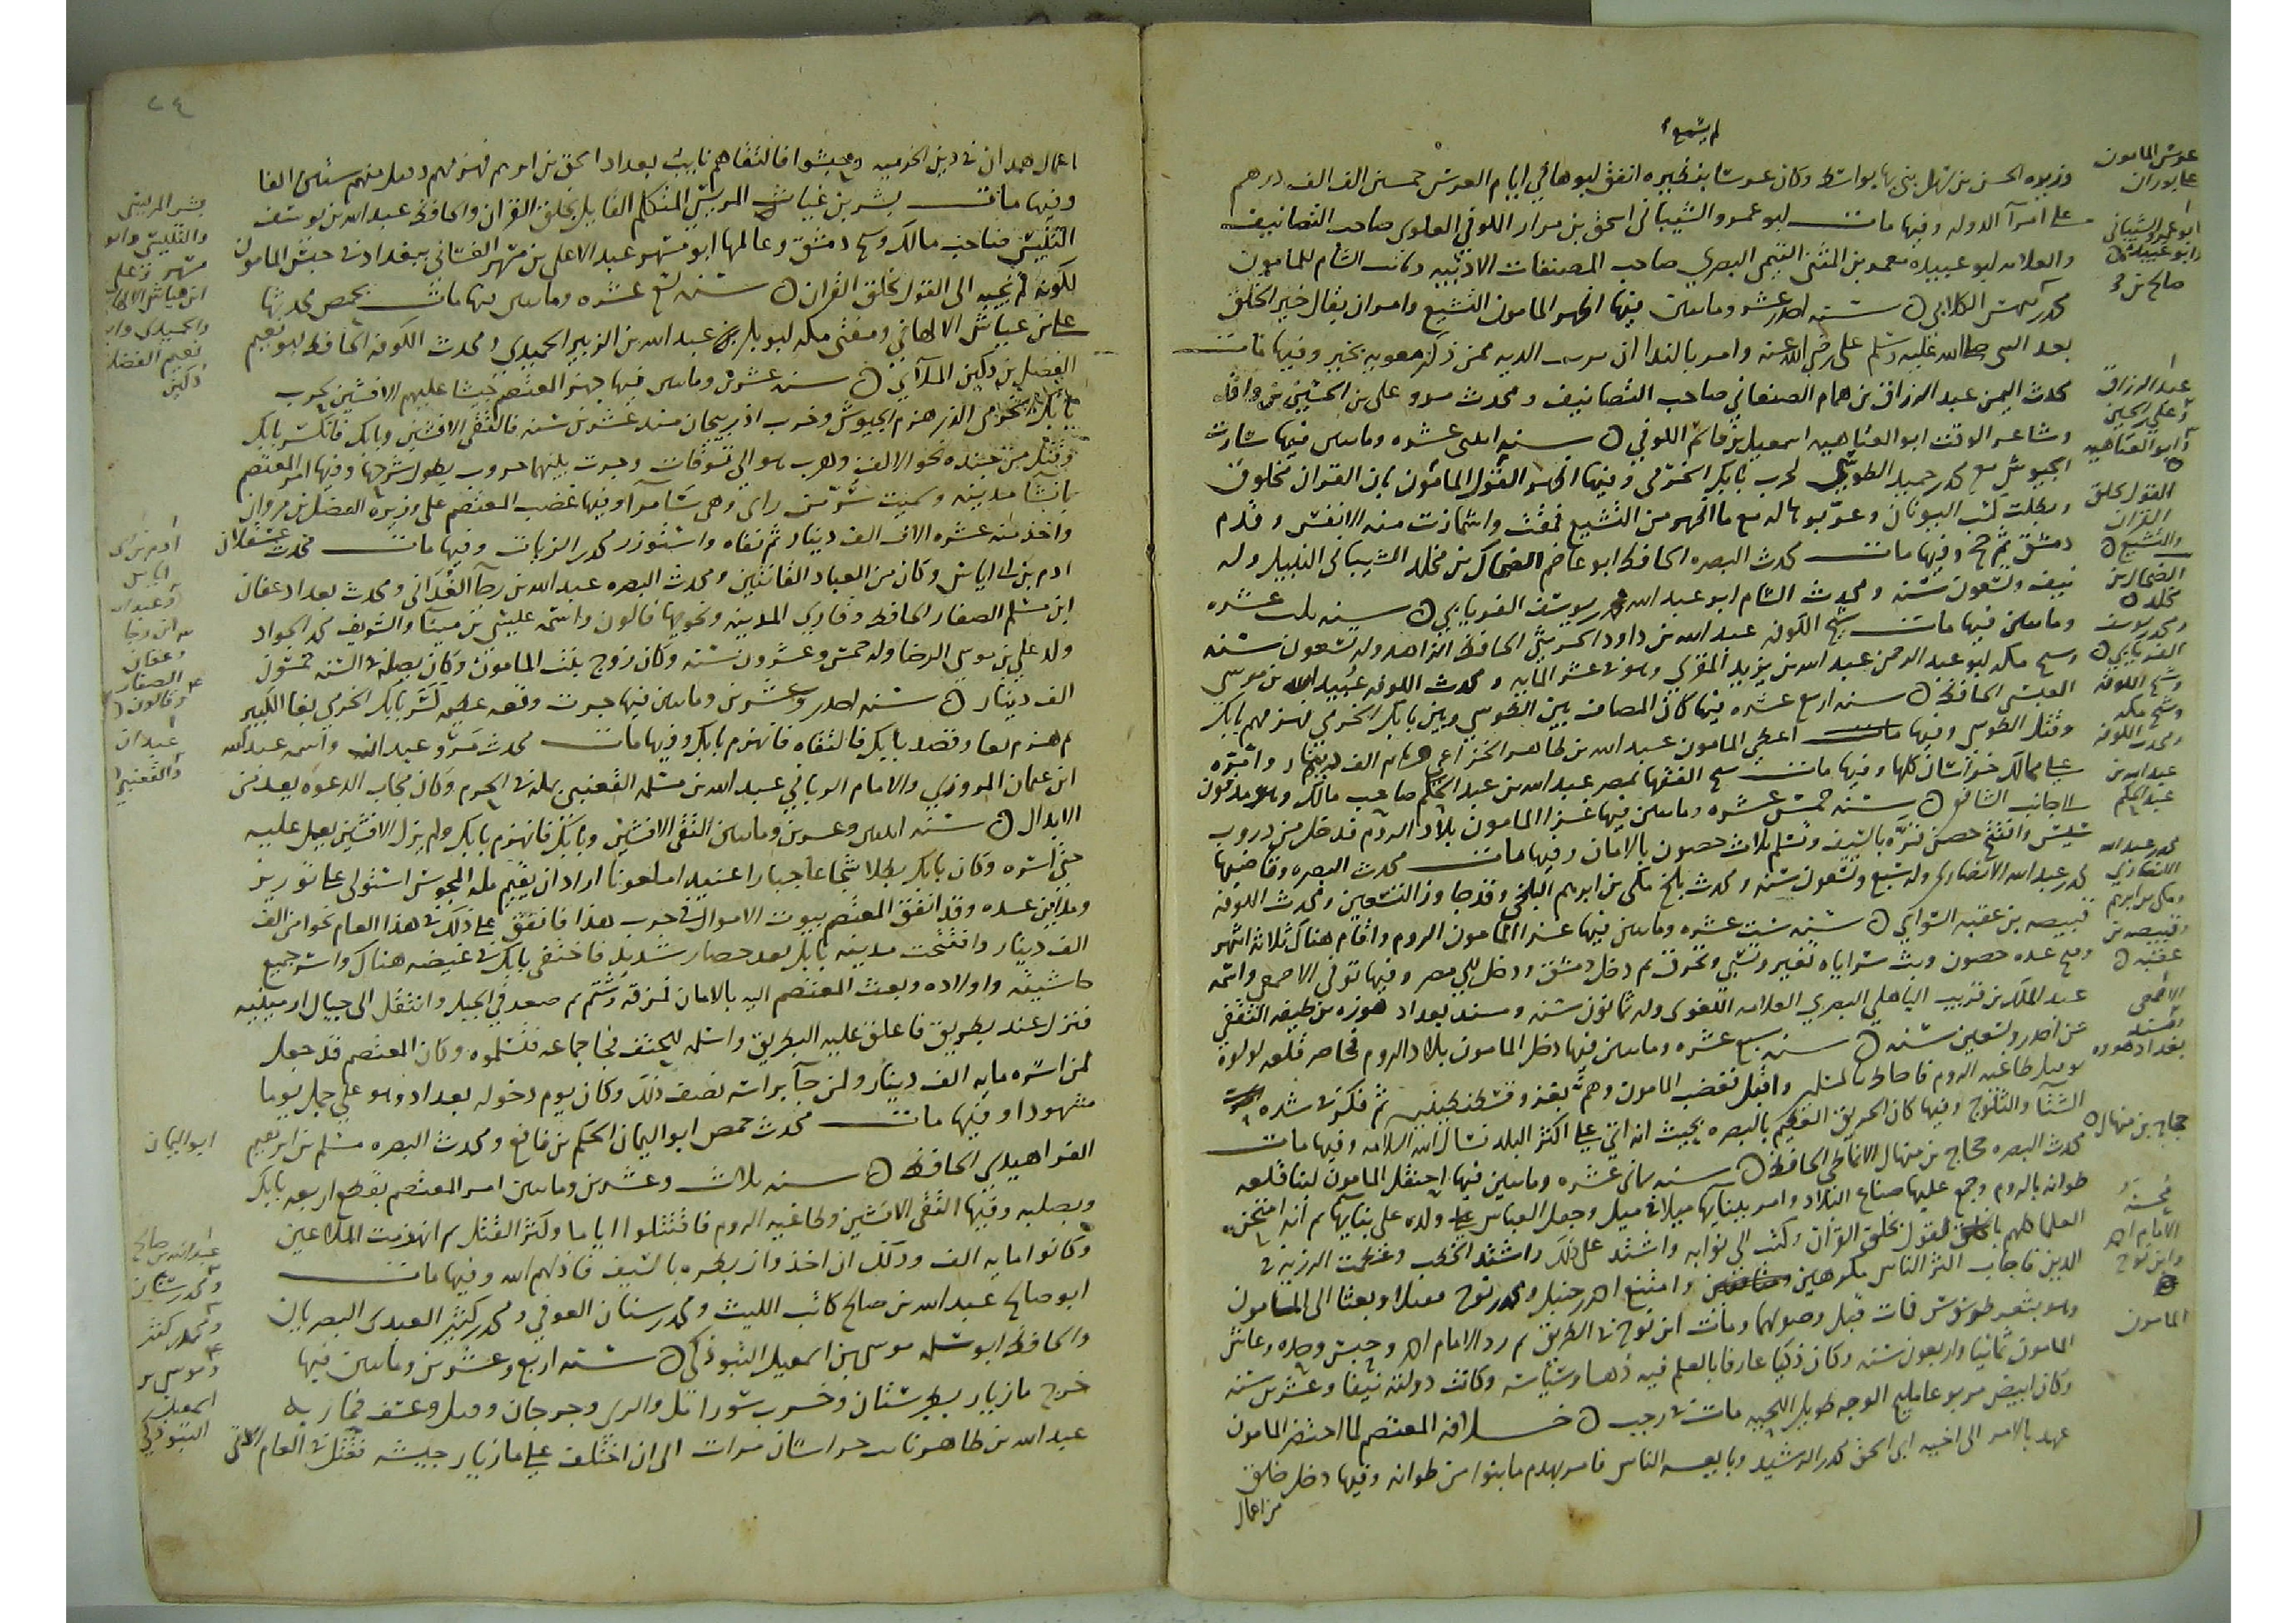 لم يسمع
وزيره الحسن بن سهل بنى بها بواسط وكان عرسا بفخيره انفق ابوها في ايام العرس خمسين الف الف درهم
على امرآ الدوله وفيها مات ابو عمرو الشيباني اسحق بن مرار الكوفي اللغوى صاحب التصانيف
والعلامه ابو عبيده معمر بن المثنى التيمي البصري صاحب المصنفات الادبيه وكاتب الشام للمامون
محمد الكلابي سنه احدى عشر ومايتين فيها اظهر المامون التشيع وامر ان يقال خير الخلق
بعد النبي صلى الله عليه وسلم علي رضي الله عنه وامر بالندا ان برئت الذمه ممن ذكر معويه بخير وفيها مات
محدث اليمن عبد الرزاق بن همام الصنعاني صاحب التصانيف ومحدث مرو علي بن الحسين بن واقد
وشاعر الوقت ابو العتاهيه اسمعيل بن قاسم الكوفي سنه اثنتي عشره ومايتين فيها سارت
الجيوش مع محمد بن حميد الطوسي لحرب بابك الخرمي وفيها اظهر القول المامون بان القران مخلوق
وبطلت كتب اليونان وعربوها له مع ما اظهر من التشيع فمقت واشمازت منه الانفس وقدم
دمشق ثم حج وفيها مات محدث البصره الحافظ ابو عاصم الضحاك بن مخلد الشيباني النبيل وله
نيف وتسعون سنه ومحدث الشام ابو عبد الله محمد بن يوسف الفريابي سنه ثلث عشره
ومايتين فيها مات شيخ الكوفه عبد الله بن داود الخريبي الحافظ الزاهد وله تسعون سنه
وشيخ مكه ابو عبد الرحمن عبد الله بن يزيد المقري وهو في عشر المايه ومحدث الكوفه عبيد الله بن موسى
العبسي الحافظ سنه اربع عشره فيها كان المصاف بين الطوسي وبين بابك الخرمي فهزمهم بابك
وقتل الطوسي وفيها اعطى المامون عبد الله بن طاهر الخزاعي الف دينار وامره
على ممالك خراسان كلها وفيها مات شيخ الفقها بمصر عبد الله بن عبد الحكم صاحب مالك وهو مدفون
الى جانب الشافعي سنه خمس عشره ومايتين فيها غزا المامون بلاد الروم فدخل من دروب
وافتتح حصن قره بالسيف وتسلم ثلاث حصون بالامان وفيها مات محدث البصره وقاضيها
محمد بن عبد الله الانصاري وله سبع وتسعون سنه ومحدث بلخ مكي بن ابرهيم البلخي وقد جاوز التسعين ومحدث الكوفه
قبيصه بن عقبه السوايي سنه ست عشره ومايتين فيها غزا المامون الروم واقام هناك ثلاثه اشهر
وفتح عده حصون وبث سراياه تغير وتسبي وتحرق ثم دخل دمشق ودخل الى مصر وفيها توفي الاصمعي واسمه
عبد الملك بن قريب الباهلي البصري العلامه اللغوى وله ثمانون سنه ومسند بغداد هوذه بن خليفه الثقفي
عن احدى وتسعين سنه سنه سبع عشره ومايتين فيها دخل المامون بلاد الروم فحاصر قلعه لولوه
واقبل فغضب المامون وهم بغزو قسطنطينيه ثم فكر في شده
الشتا والثلوج وفيها كان الحريق العظيم بالبصره بحيث انه اتى على اكثر البلد نسال الله السلامه وفيها مات
محدث البصره حجاج بن منهال الانماطي الحافظ سنه ثماني عشره ومايتين فيها احتفل المامون لبنا قلعه
طوانه بالروم وجمع عليها صناع البلاد وامر ببنايها ميلا في ميل وجعل العباس ولده على بنايها ثم انه امتحن
العلما كلهم بالقول بخلق القران وكتب الى نوابه واشتد على ذلك واشتد الخطب وعظمت الرزيه في
الدين فاجاب اكثر الناس مكرهين وامتنع احمد بن حنبل ومحمد بن نوح فقيدا وبعثا الى المامون
وهو بثغر طرسوس فمات قبل وصولهما ومات ابن نوح في الطريق ثم رد الامام احمد وحبس وحده وعاش
المامون ثمانيا واربعون سنه وكان ذكيا عارفا بالعلم فيه دها وسياسه وكانت دولته نيفا وعشرين سنه
وكان ابيض مربوعا مليح الوجه طويل اللحيه مات في رجب خلافه المعتصم لما احتضر المامون
عهد بالامر الى اخيه ابى اسحق محمد بن الرشيد وبايعه الناس فامر بهدم ما بنوا من طوانه وفيها دخل خلق
من اعمال
عرس المامون
على بوران
ابو عمرو الشيباني
وابو عبيده
عبد الرزاق
وعلي بن الحسين
وابو العتاهيه
القول بخلق
القران
والتشيع
الضحاك بن
مخلد
ومحمد بن يوسف
الفريابي
وشيخ الكوفه
وشيخ مكه
ومحدث الكوفه
عبد الله بن
عبد الحكم
محمد بن عبد الله
الانصاري
ومكي بن ابرهيم
وقبيصه بن
عقبه
الاصمعي
ومسند
بغداد هوذه
حجاج بن منهال
محنه
الامام احمد
وابن نوح
المامون
٢٤
اعمال همدان في دين الخرميه وجيشوا فالتقاهم نايب بغداد اسحق بن ابرهيم فهزمهم وقتل منهم ستين الفا
وفيها مات بشر بن غياث المريسي المتكلم القايل بخلق القران والحافظ عبد الله بن يوسف
التنيسي صاحب مالك وشيخ دمشق وعالمها ابو مسهر عبد الاعلى بن مسهر الغساني ببغداد في حبس المامون
لكونه لم يجبه الى القول بخلق القران سنه تسع عشره ومايتين فيها مات بحمص محدثها
علي بن عياش الالهاني ومفتي مكه ابو بكر عبد الله بن الزبير الحميدي ومحدث الكوفه الحافظ ابو نعيم
الفضل بن دكين الملآيي سنه عشرين ومايتين فيها جهز المعتصم جيشا عليهم الافشين لحرب
بابك الخرمي الذي هزم الجيوش وخرب اذربيجان منذ عشرين سنه فالتقى الافشين وبابك فانكسر بابك
وقتل من جنده نحو الالف وهرب هو الى موقان وجرت بينهما حروب يطول شرحها وفيها امر المعتصم
بانشا مدينه وسميت سر من راى وهي سامرا وفيها غضب المعتصم على وزيره الفضل بن مروان
واخذ منه عشره الاف الف دينار ثم نفاه واستوزر محمد بن الزيات وفيها مات محدث عسقلان
ادم بن ابي اياس وكان من العباد القانتين ومحدث البصره عبد الله بن رجآ الغداني ومحدث بغداد عفان
ابن مسلم الصفار الحافظ وقاري المدينه ونحويها قالون واسمه عيسى بن مينا والشريف محمد الجواد
ولد علي بن موسى الرضا وله خمس وعشرون سنه وكان زوج بنت المامون وكان يصله في السنه خمسون
الف دينار سنه احدى وعشرين ومايتين فيها جرت وقعه عظيمه كسر بابك الخرمي بغا الكبير
ثم هزم بغا وقصد بابك فالتقاه فانهزم بابك وفيها مات محدث مرو عبدان واسمه عبد الله
ابن عثمان المروزي والامام الرباني عبد الله بن مسلمه القعنبي بمكه في المحرم وكان مجاب الدعوه يعد من
الابدال سنه اثنتين وعشرين ومايتين التقى الافشين وبابك فانهزم بابك ولم يزل الافشين يعمل عليه
حتى اسره وكان بابك بطلا شجاعا جبارا عنيدا ملعونا اراد ان يقيم مله المجوس استولى على
ومداين عده وقد انفق المعتصم بيوت الاموال في حرب هذا فانفق على ذلك في هذا العام نحوا من الف
الف دينار وافتتحت مدينه بابك بعد حصار شديد فاختفى بابك في غيضه هناك واسر جميع
حاشيته واولاده وبعث المعتصم اليه بالامان فمزقه وشتم ثم صعد في الجبل وانتقل الى جبال ارمينيه
فنزل عند بطريق فاغلق عليه البطريق واسلمه فجا جماعه فتسلموه وكان المعتصم قد جعل
لمن اسره مايه الف دينار ولمن جآ براسه نصف ذلك وكان يوم دخوله بغداد وهو على جمل يوما
مشهودا وفيها مات محدث حمص ابو اليمان الحكم بن نافع ومحدث البصره مسلم بن ابرهيم
الفراهيدي الحافظ سنه ثلاث وعشرين ومايتين امر المعتصم بقطع اربعه بابك
وبصلبه وفيها التقى الافشين وطاغيه الروم فاقتتلوا اياما وكثر القتل ثم انهزمت الملاعين
وكانوا مايه الف وذلك ان اخذوا زبطره بالسيف فاذلهم الله وفيها مات
ابو صالح عبد الله بن صالح كاتب الليث ومحمد بن سنان العوفي ومحمد بن كثير العبدي البصريان
والحافظ ابو سلمه موسى بن اسمعيل التبوذكي سنه اربع وعشرين ومايتين فيها
خرج مازيار بطبرستان وخرب سور امل والري وجرجان وقتل وعسف فحاربه
عبد الله بن طاهر نايب خراسان مرات الى ان اختلف على مازيار جيشه فقتل في العام الاتي
بشر المريسي
والتنيسي وابو
مسهر وعلي
ابن عياش الالهاني
والحميدي وابو
نعيم الفضل
دكين
ادم بن ابي
اياس
وعبد الله
بن رجا
وعفان
الصفار
وقالون
عبدان
والقعنبي
ابو اليمان
عبد الله بن صالح
ومحمد بن سنان
ومحمد بن كثير
وموسى بن
اسمعيل
التبوذكي